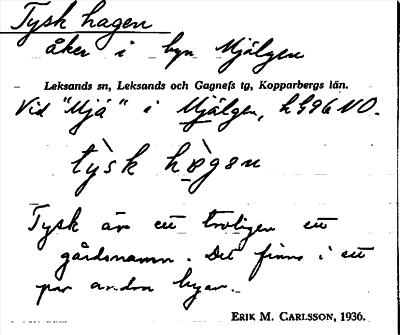 Tysk hagen
åker i byn Mjälgen
Leksands sn, Leksands och Gagnefs tg, Kopparbergs län.
Vid "Mjä" i Mjälgen, h 996 NO.
tỳsk hògen
Tysk är ett troligen ett
gårdsnamn. Det finns i ett
par andra byar.
ERIK M. CARLSSON, 1936.